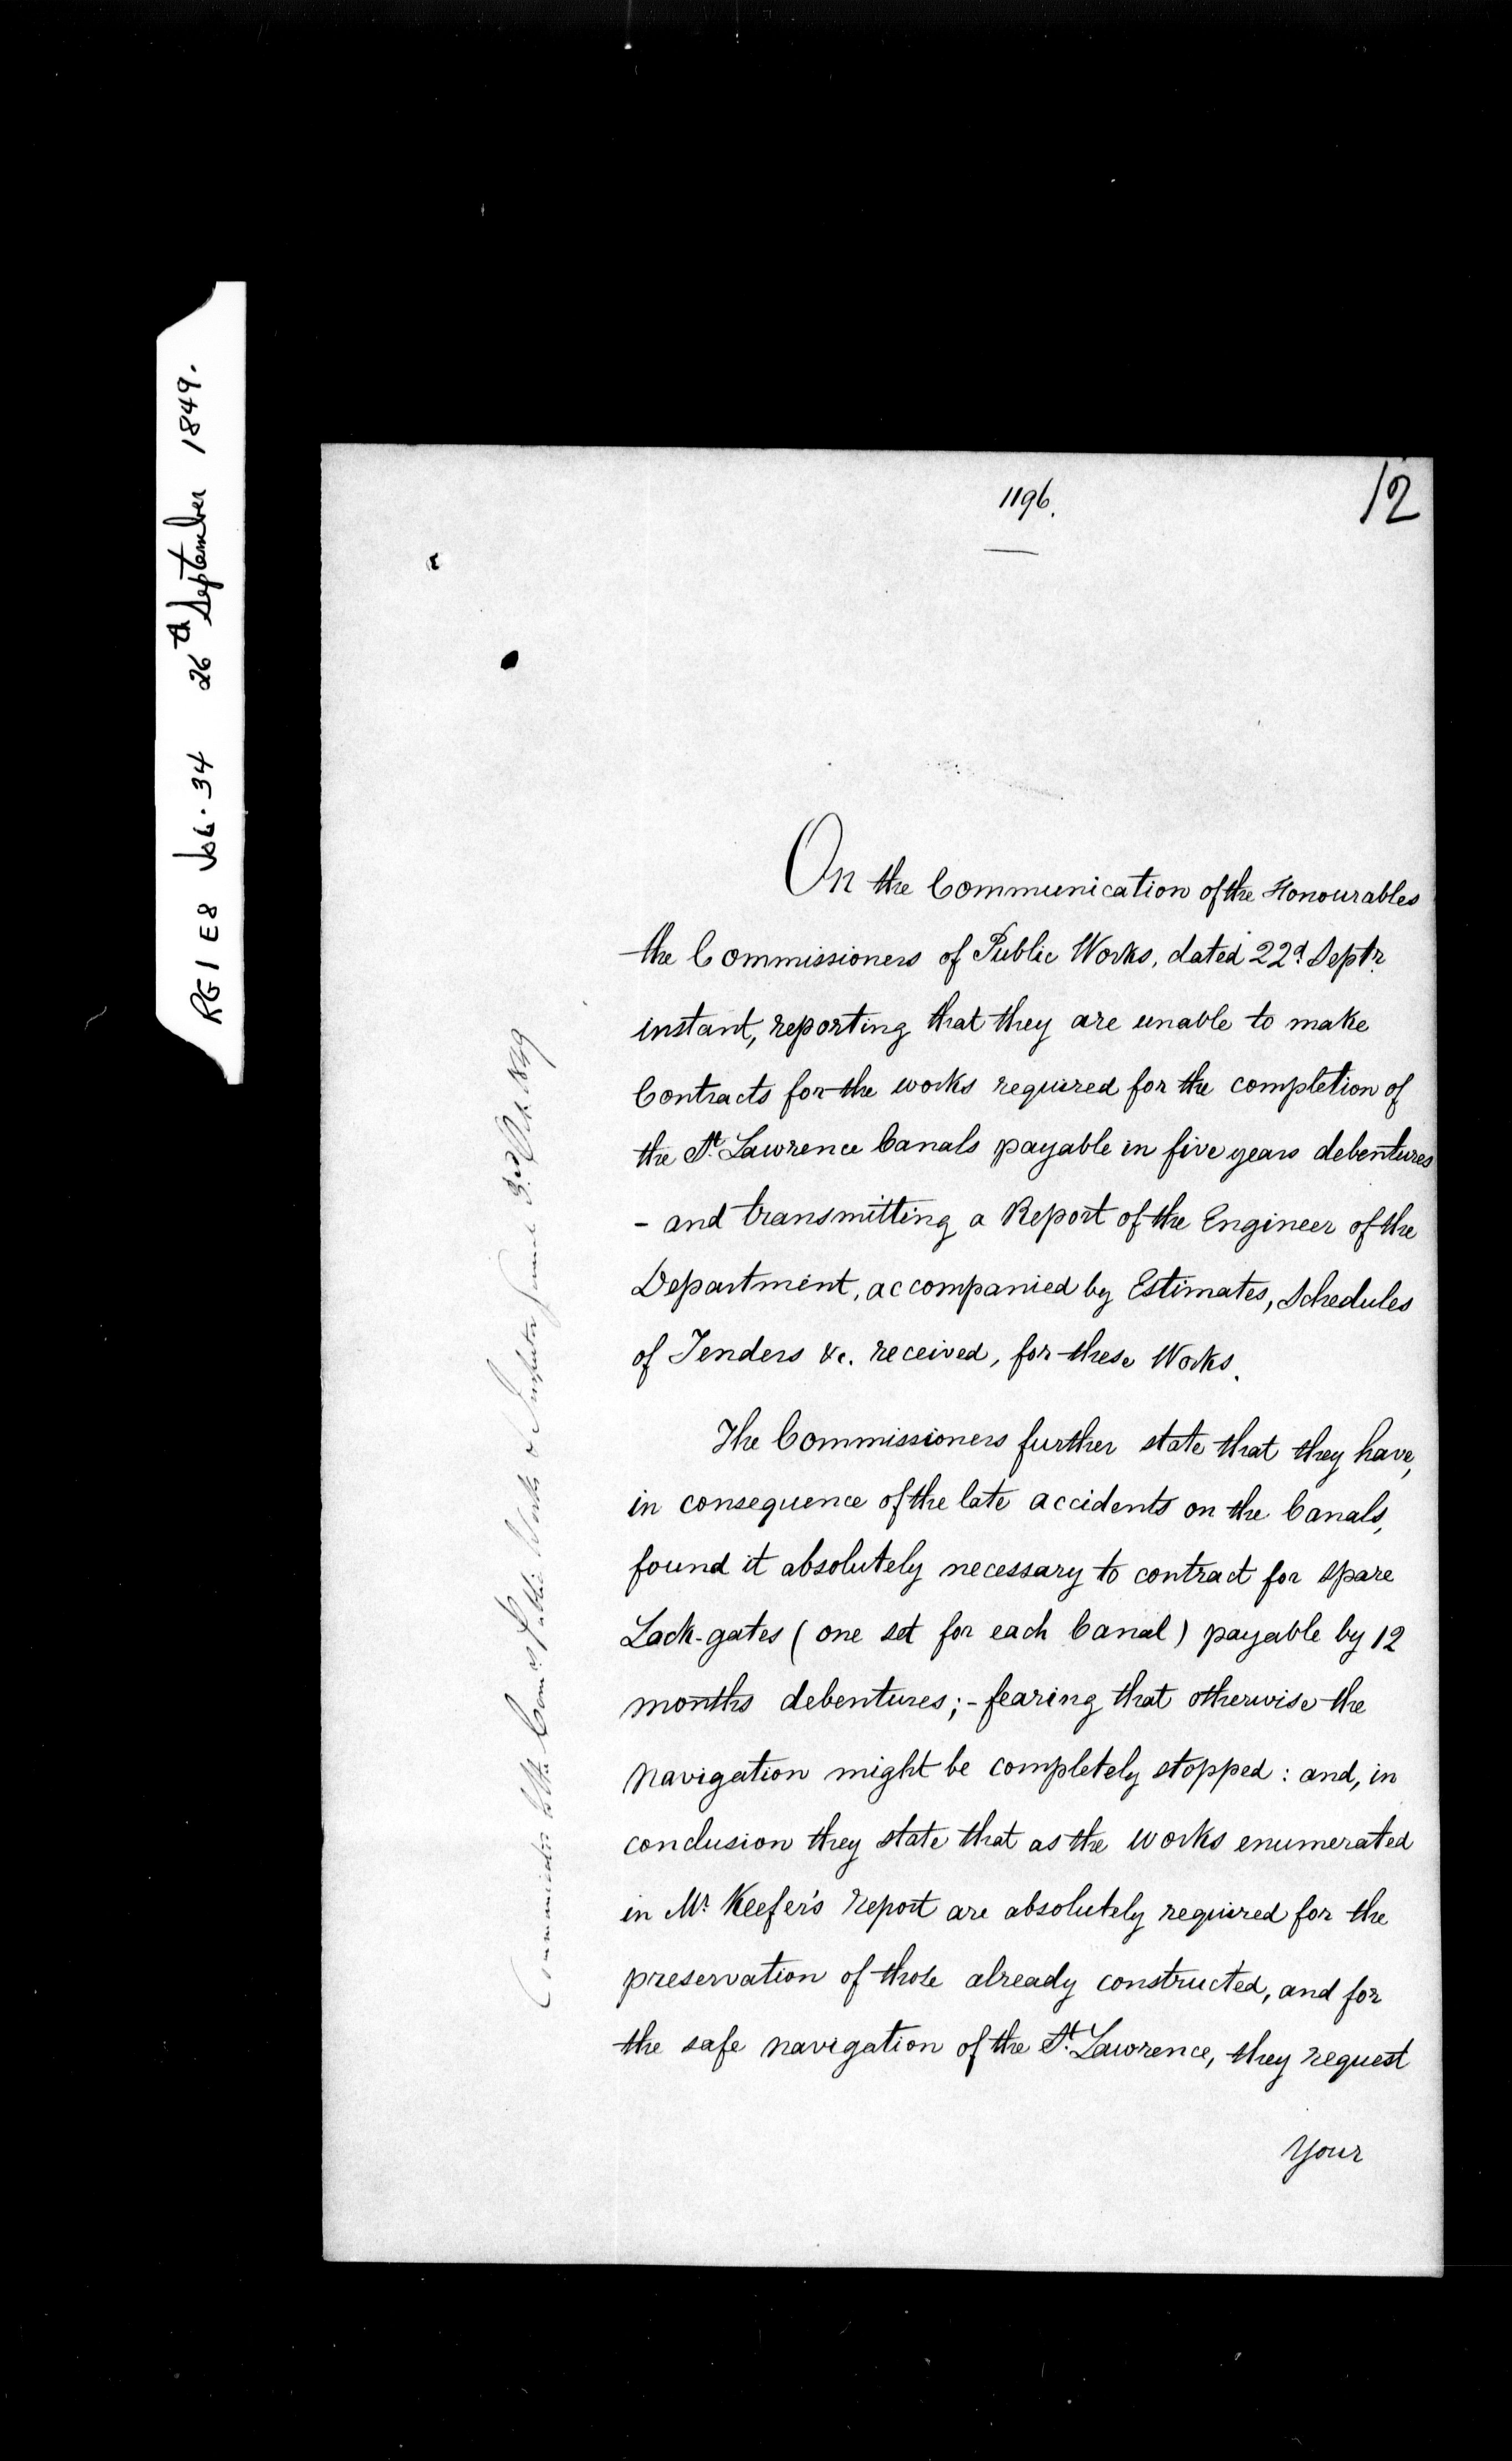 RG 1 E8 Vol. 34 26th September 1849.
1196.
12
On the Communication of the Honourables
the Commissioners of Public Works, dated 22d. Septr.
instant, reporting that they are unable to make
Contracts for the works required for the completion of
the St. Lawrence Canals payable in five years debentures
- and transmitting a Report of the Engineer of the
Department, accompanied by Estimates, Schedules
of Tenders &c. received, for these Works.
The Commissioners further state that they have,
in consequence of the late accidents on the Canals,
found it absolutely necessary to contract for spare
Lock-gates (one set for each Canal) payable by 12
months debentures; - fearing that otherwise the
navigation might be completely stopped: and, in
conclusion they state that as the works enumerated
in Mr. Keefer's report are absolutely required for the
preservation of those already constructed, and for
the safe navigation of the St. Lawrence, they request
Your
to the Comrs. of Public Works & Inspector 3rd Oct. 1849